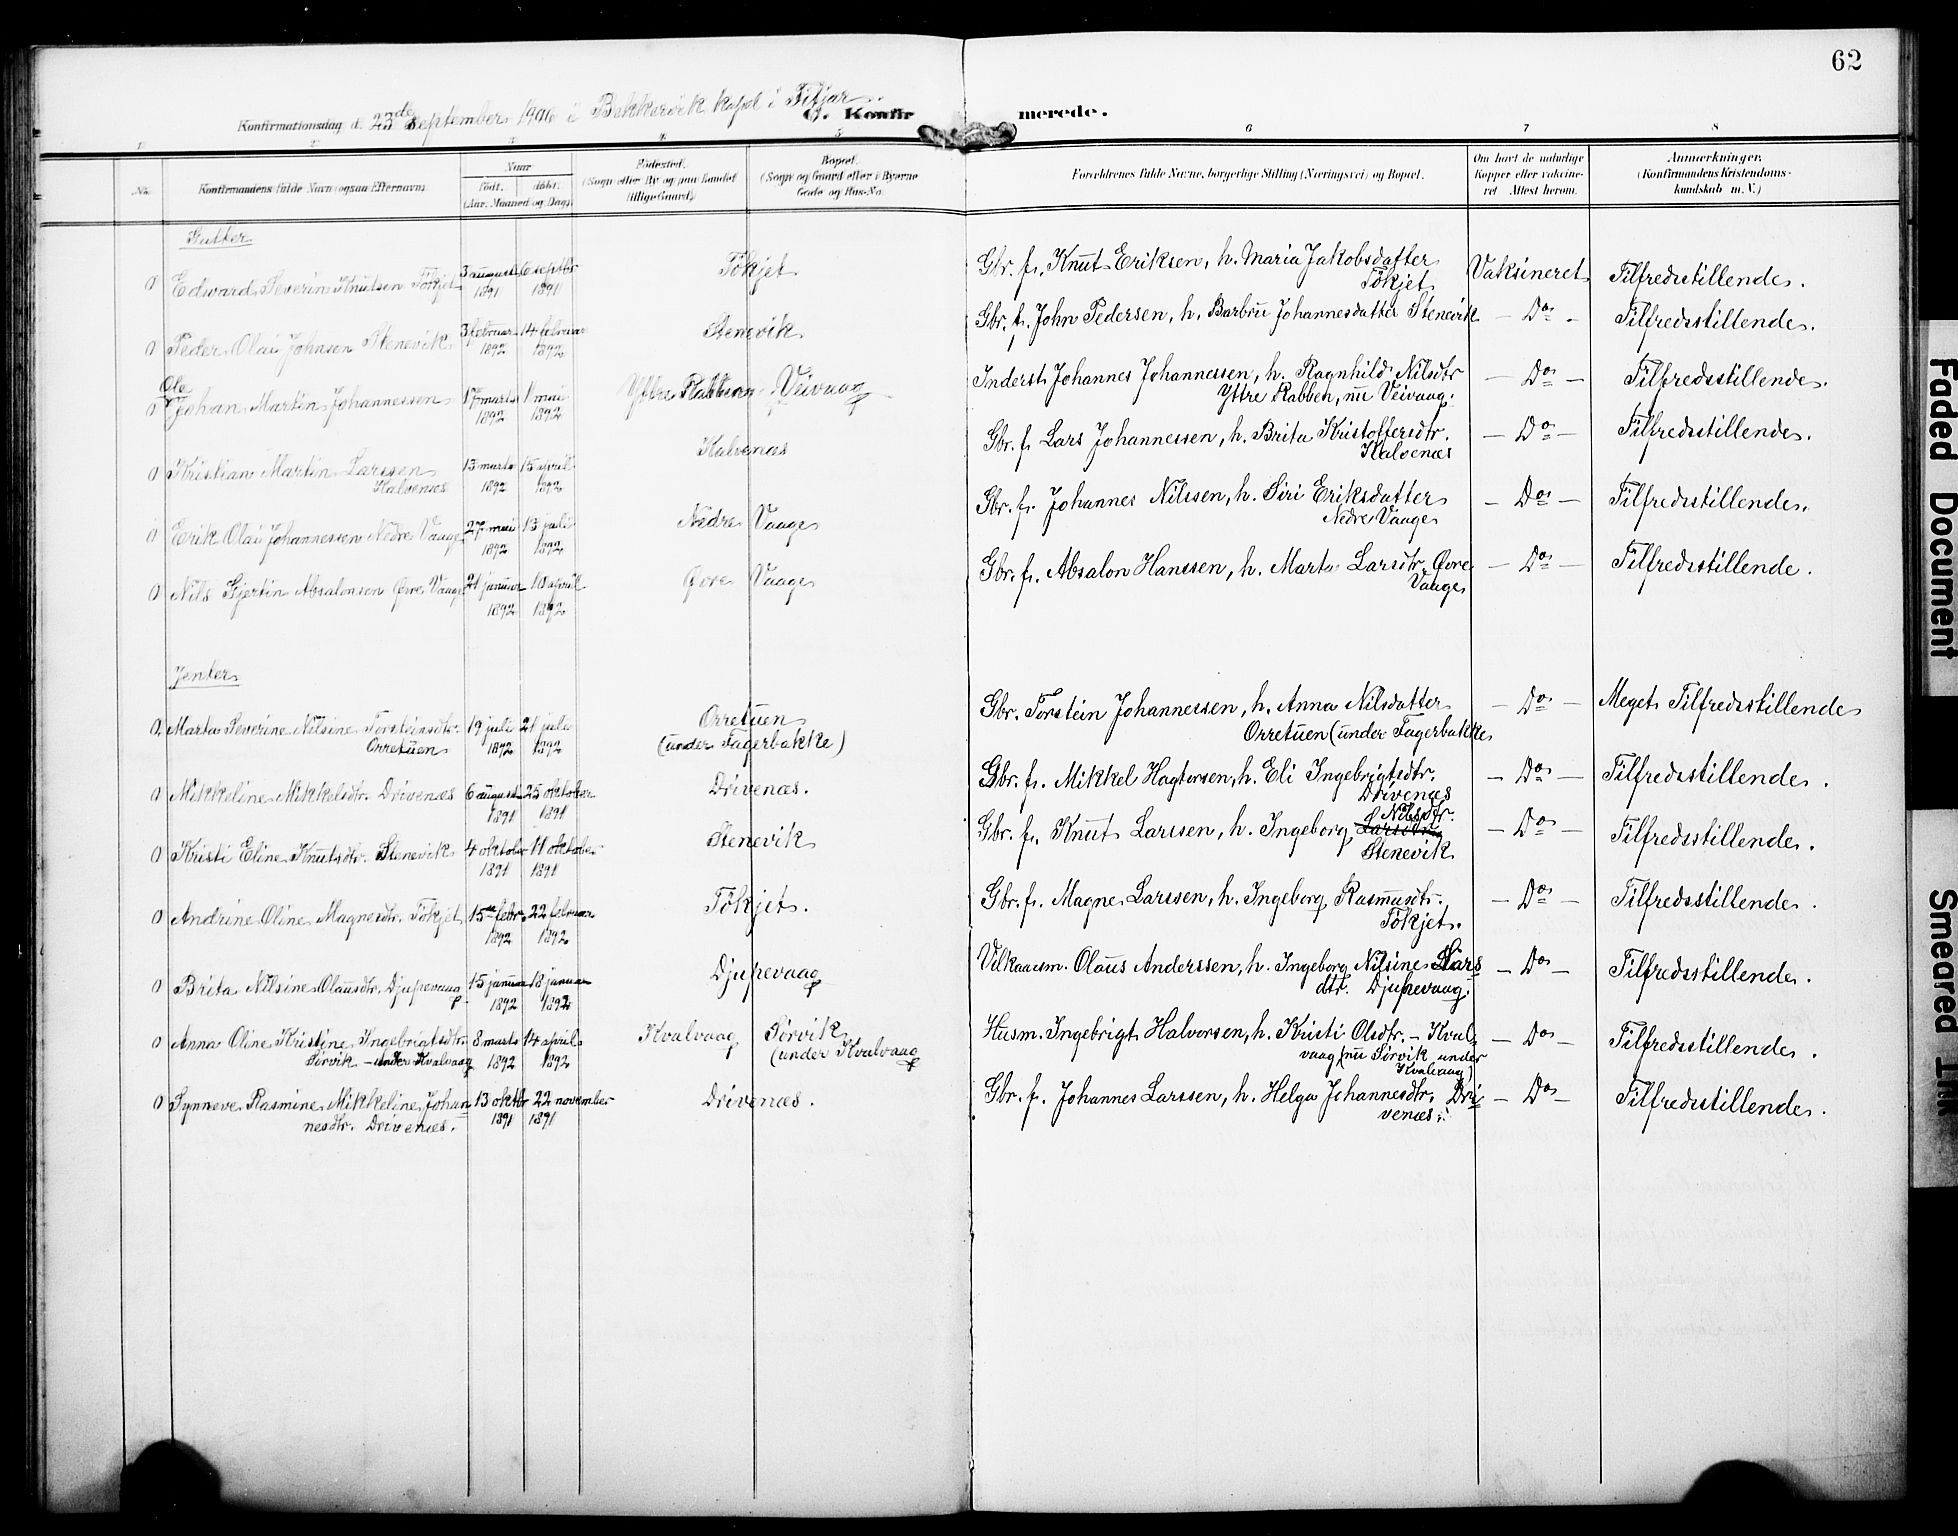 62
Konfirmationsdag d. 23de september 1906 i Bekkervik kapel i Fitjar.
C. Konfirmerede.
1 2 3 4 5 6 7 8
No. Konfirmandens fulde Navn (ogsaa Efternavn). Naar Født. døbt. (Aar, Maaned og Dag). Fødested. (Sogn eller By og paa Landet tillige Gaard). Bopæl. (Sogn og Gaard eller i Byerne Gade og Hus-No. Forældrenes fulde Navne, borgerlige Stilling (Næringsvei) og Bopæl. Om havt de naturlige Kopper eller vakcineret Attest herom. Anmærkninger. (Konfirmandens Kristendomskundskab m. V.)
Gutter
0 Edward Severin Knutsen Tökjet 3 august 1891 6 septbr 1891 Tökjet Gbr. f. Knut Eriksen, h. Maria Jakobsdatter Tökjet Vaksineret Tilfredsstillende.
0 Peder Olai Johnsen Stenevik 3 februar 1892 14 februar 1892 Stenevik Gbr. f. John Pedersen, h. Barbru Johannesdatter Stenevik – Do – Tilfredsstillende.
0 Ole Johan Martin Johannessen 17 marts 1892 1 mai 1892 Yttre Rabben Veivaag Inderst Johannes Johannessen, h. Ragnhild Nilsdtr
Yttre Rabben, nu Veivaag. – Do – Tilfredsstillende.
0 Kristian Martin Larssen
Kalvenæs 13 marts 1892 15 april 1892 Kalvenæs Gbr. f. Lars Johannessen, h. Brita Kristoffersdtr.
Kalvenæs – Do – Tilfredsstillende.
0 Erik Olai Johannessen Nedre Vaage 27 mai 1892 13 juli 1892 Nedre Vaage Gbr. f. Johannes Nilssen, h. Siri Eriksdatter
Nedre Vaage – Do – Tilfredsstillende.
0 Nils Gjertin Absalonsen Øvre Vaage 21 januar 1892 10 april 1892 Øvre Vaage Gbr. f. Absalon Hanssen, h. Marta Larsdtr. Øvre
Vaage – Do – Tilfredsstillende.
Jenter
0 Marta Severine Nilsine Torsteinsdtr.
Orretuen 19 juli 1892 21 juli 1892 Orretuen
(under Fagerbakke) Gbr. Torstein Johannessen, h. Anna Nilsdatter
Orretuen (under Fagerbakke – Do – Meget Tilfredsstillende
0 Mikkeline Mikkelsdtr. Drivenæs 6 august 1891 25 oktober 1891 Drivenæs. Gbr. f. Mikkel Hagtorsen, h. Eli Ingebrigtsdtr.
Drivenæs – Do – Tilfredsstillende.
0 Kristi Eline Knutsdtr. Stenevik 4 oktober 1891 11 oktober 1891 Stenevik Gbr. f. Knut Larssen, h. Ingeborg Nilsdtr.
Stenevik – Do – Tilfredsstillende.
0 Andrine Oline Magnesdtr. Tökjet 15de febr. 1892 22 februar 1892 Tökjet. Gbr. f. Magne Larssen, h. Ingeborg Rasmusdtr.
Tökjet. – Do – Tilfredsstillende.
0 Brita Nilsine Olausdtr. Djupevaag 15 januar 1892 18 januar 1892 Djupevaag Vilkaarsm. Olaus Anderssen, h. Ingeborg Nilsine Lars
dtr. Djupevaag. – Do – Tilfredsstillende.
0 Anna Oline Kristine Ingebrigtsdtr.
Sørvik – under Kvalvaag 8 marts 1892 14 april 1892 Kvalvaag Sørvik
(under Kvalvaag Husm. Ingebrigt Halvorsen, h. Kristi Olsdtr. – Kval
vaag (nu Sørvik under
Kvalvaag) – Do – Tilfredsstillende.
0 Synneve Rasmine Mikkeline Johan
nesdtr. Drivenæs. 13 oktbr 1891 22 november 1891 Drivenæs. Gbr. f. Johannes Larssen, h. Helga Johannesdtr. Dri
venæs. – Do – Tilfredsstillende.
Faded Document
Smeared Ink